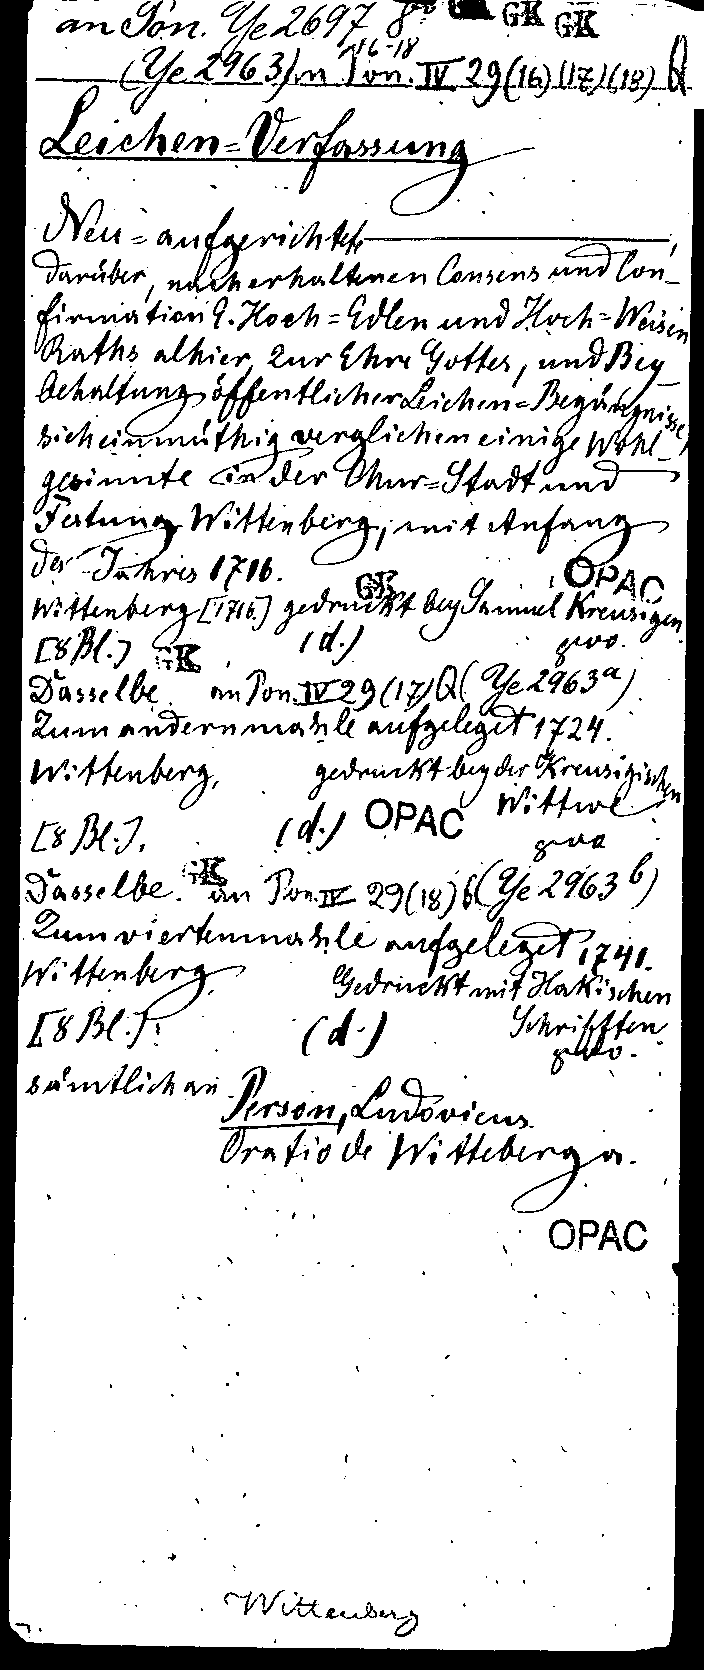 an Pon. Ye 2697 8° GK GK GK
16-18
(Ye 2963) an Pon. IV 29(16)(17)(18) Q
Leichen=Verfassung
Neu=aufgerichtete ———,
darüber, nach erhaltenen Consens und Con-
firmation E. Hoch=Edlen und Hoch=Weisen
Raths alhier, zur Ehre Gottes, und Bey-
behaltung öffentlicher Leichen=Begängnisse,
sich einmüthig verglichen einige Wohl-
gesinnte in der Chur=Stadt und
Festung Wittenberg, mit Anfang
des Jahres 1716.
GK OPAC
Wittenberg [1716.] gedruckt bey Samuel Kreusigen
[8 Bl.] GK (d.)
Dasselbe an Pon. IV 29(17) Q (Ye 2963a)
Zum andernmahle aufgeleget 1724.
Wittenberg, gedruckt bey der Kreusigischen
Wittwe
[8 Bl.], (d.) OPAC
Dasselbe. GK an Pon. IV 29(18) (Ye 2963b)
Zum viertenmahle aufgeleget 1741.
Wittenberg Gedruckt mit Hakischen
Schrifften
[8 Bl.]. (d.)
sämtlich an Person, Ludovicus
Oratio de Witteberga.
OPAC
Wittenberg